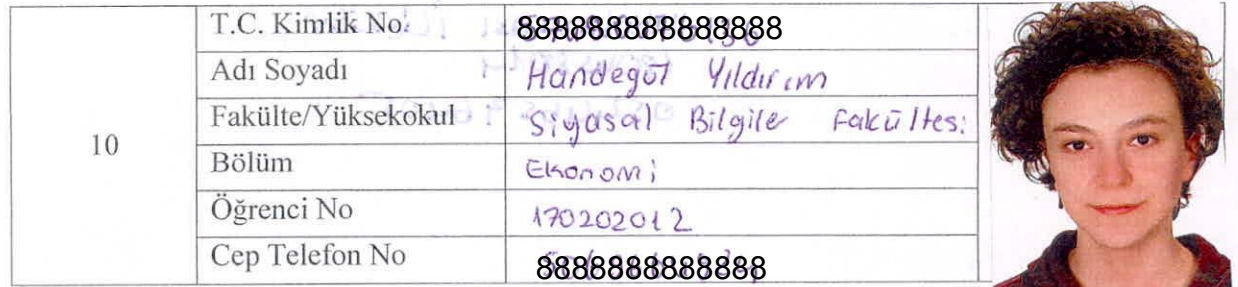 10
T.C. Kimlik No: 88888888888888
Adı Soyadı Handegül Yıldırım
Fakülte/Yüksekokul Siyasal Bilgiler Fakültesi
Bölüm Ekonomi
Öğrenci No 170202012
Cep Telefon No 8888888888888